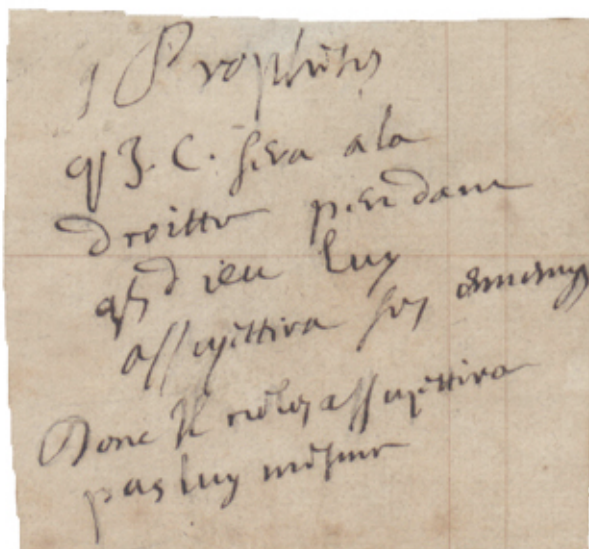 Prophetes
q J. C. sera a la
droitte pendant
q dieu luy
assujettira ses ennemys
Donc Il ne les assujettira
pas luy mesme